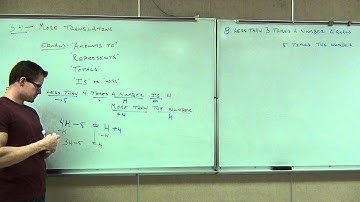 MORE TRANSLATIONS
EQUALS: "AMOUNTS TO"
"REPRESENTS"
"TOTALS"
"IS OR WAS"
LESS THAN 4 TIMES A NUMBER IS 4
MORE THAN THE NUMBER
4H - 5 = H + 4
-H -H
3H - 5 = 4
8 LESS THAN 3 TIMES A NUMBER EQUALS
5 TIMES THE NUMBER